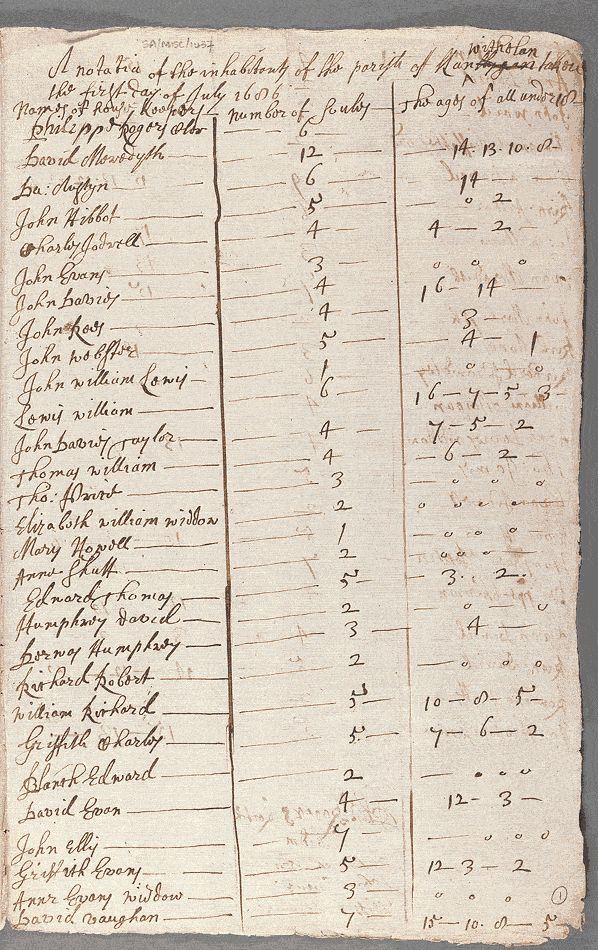 SA/MISC/1037
A notatio of the inhabitants of the parish of withelan taken
the first day of July 1686
Names of house keepers number of soules The ages of all under 18
Philippe Rogers 6
David Meredyth 12 14 13 10 8
Da: Austyn 6 14
John Hibbot 5 0 2
Charles Jodrell 4 4 2
John Evans 3 0 0 0
John Davies 4 16 14
John Rees 4 3
John Webster 5 4 1
John william Lewis 1 0 0
Lewis william 6 16 7 5 3
John Davies Taylor 4 7 5 2
Thomas william 4 6 2
Tho: Price 3 0 0 0
Elizabeth william widdow 2 0 0 0 0
Mary Howell 1 0 0 0
Anne Shutt 2 0 0 0
Edward Thomas 5 3 2
Humphrey David 2 0 0
Humphrey 3 4
Richard Robert 2 0 0 0
William Richard 5 10 8 5
Griffith Charles 5 7 6 2
Blanch Edward 2 0 0 0
David Evan 4 12 3
John Ellis 7 0 0 0
Griffith Evans 5 12 3 2
Anne Evans widdow 3 0 0 0
David Vaughan 7 15 10 8 5
1